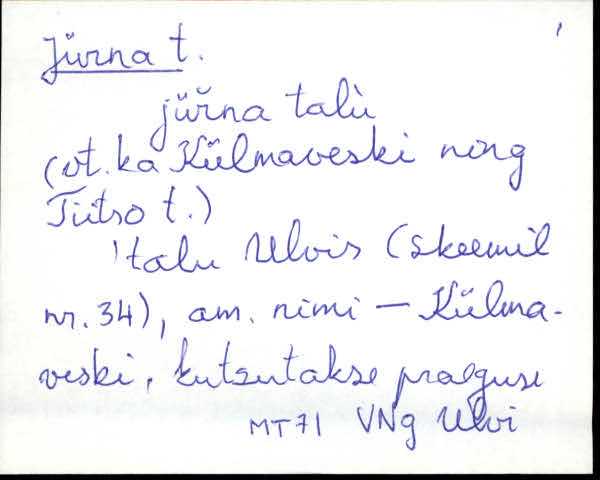 Jürna t.
jürna talù
(vt. ka Külmaveski ning
Tiitso t.)
talu Ulvis (skeemil
nr. 34), am. nimi — Külma-
veski, kutsutakse praeguse
MT71 VNg Ulvi